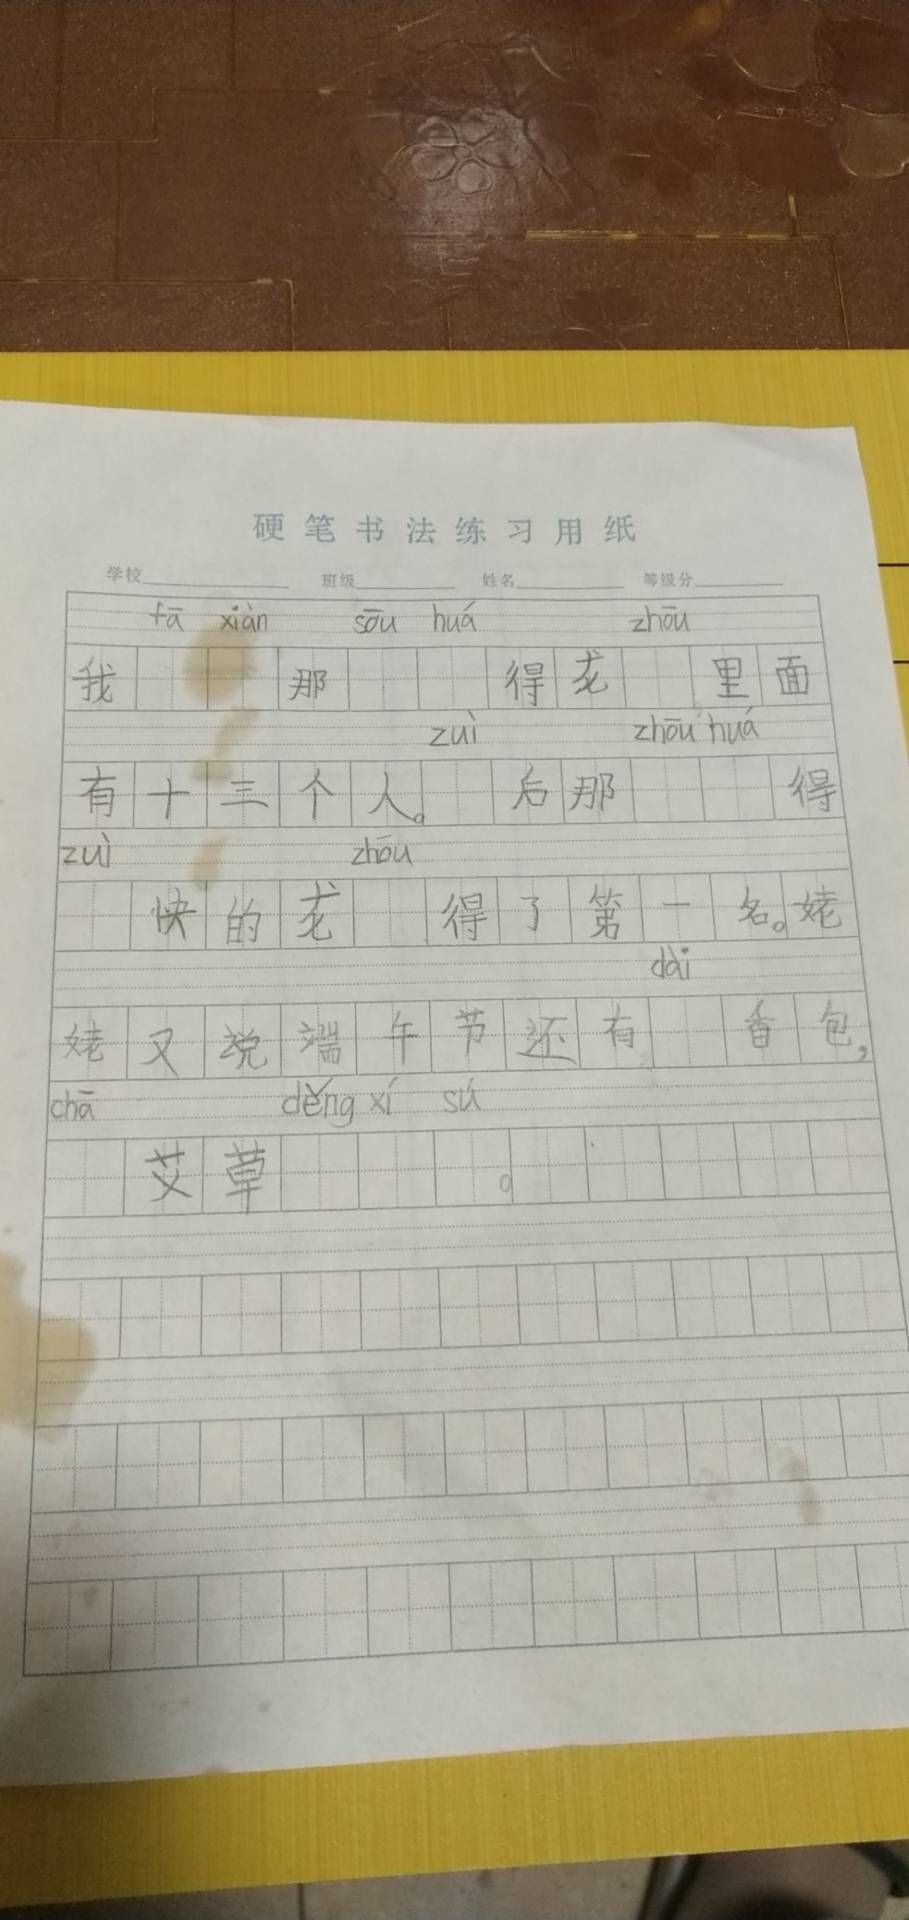 硬笔书法练习用纸
学校 班级 姓名 等级分
fā xiàn sōu huá zhōu
我 那 得龙 里面
zuì zhōu huá
有十三个人。 后那 得
zuì zhōu
快的龙 得了第一名。姥
dài
姥又说端午节还有 香包,
chā děng xí sú
艾草 。